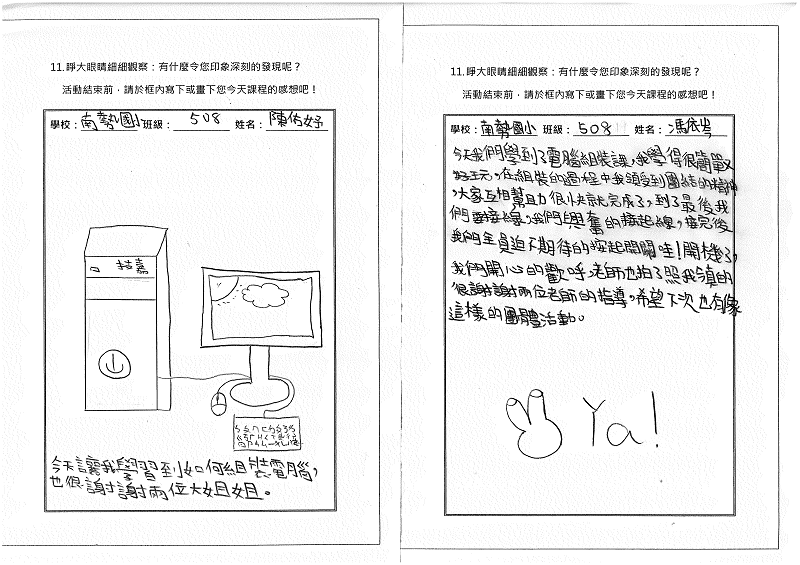 11.睜大眼睛細細觀察：有什麼令您印象深刻的發現呢？
活動結束前，請於框內寫下或畫下您今天課程的感想吧！
學校：南勢國小 班級：508 姓名：陳佑妤
技嘉
今天讓我學習到如何組裝電腦，
也很謝謝兩位大姐姐。
11.睜大眼睛細細觀察：有什麼令您印象深刻的發現呢？
活動結束前，請於框內寫下或畫下您今天課程的感想吧！
學校：南勢國小 班級：508 姓名：馮依岑
今天我們學到了電腦組裝課，我學得很簡單又
好玩，在組裝的過程中我領受到團結的精神
，大家互相幫助力很快就完成了，到了最後我
們要接線，我們興奮的接起線，接完後
我們全員迫不期待的按起開關哇！開機了，
我們開心的歡呼，老師也拍了照我今真的
很謝謝兩位老師的指導，希望下次也有像
這樣的團體活動。
Ya!